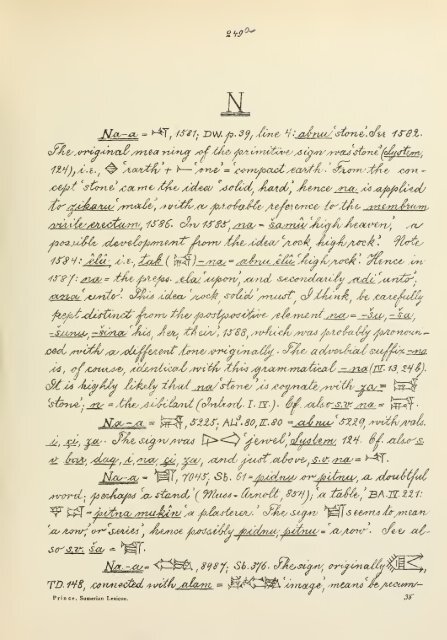 249a
N
Na-a = 𒈾, 1581; DW. p. 39, line 4: abnu 'stone'. In 1582.
The original meaning of the primitive sign was 'stone' (System,
124), i.e., 'earth' + 'one' = 'compact earth'. From the con-
cept 'stone' came the idea 'solid, hard', hence na is applied
to zikaru 'male', with a probable reference to the membrum
virile erectum, 1586. In 1585, na = šamû 'high heaven', a
possible development from the idea 'rock, high rock'. Note
1584: êlû, i.e., tak ( ) - na = abnu êlû 'high rock'. Hence in
1587: na = the preps. ela 'upon', and secondarily adi 'unto';
ana 'unto'. This idea 'rock, solid' must, I think, be carefully
kept distinct from the postpositive element na = -šu, -ša,
-šunu, -šina 'his, her, their', 1588, which was probably pronoun-
ced with a different tone originally. The adverbial suffix -na
is, of course, identical with this grammatical -na (IV. 13, 24b).
It is highly likely that na 'stone' is cognate with za =
'stone'; n = the sibilant (Introd. I. IX.). Cf. also s.v. na = .
Na-a = , 5225, AL³. 80, II. 80 = abnu 5229, with vals.
i, ṣi, za. The sign was 'jewel', System, 124. Cf. also s.
v. bar, dag, i, na, ṣi, za, and just above, s.v. na = 𒈾.
Na-a = , 7045, Sb. 61 = pidnu or pitnu, a doubtful
word; perhaps 'a stand' (Muss-Arnolt, 854); 'a table', BA. II. 221:
= pitna mukîn 'a plasterer'. The sign seems to mean
'a row', or 'series', hence possibly pidnu, pitnu = 'a row'. See al-
so s.v. ša = .
Na-a = , 8987; Sb. 376. The sign, originally ,
TD. 148, connected with alam = 'image', means 'be recum-
Prince, Sumerian Lexicon.